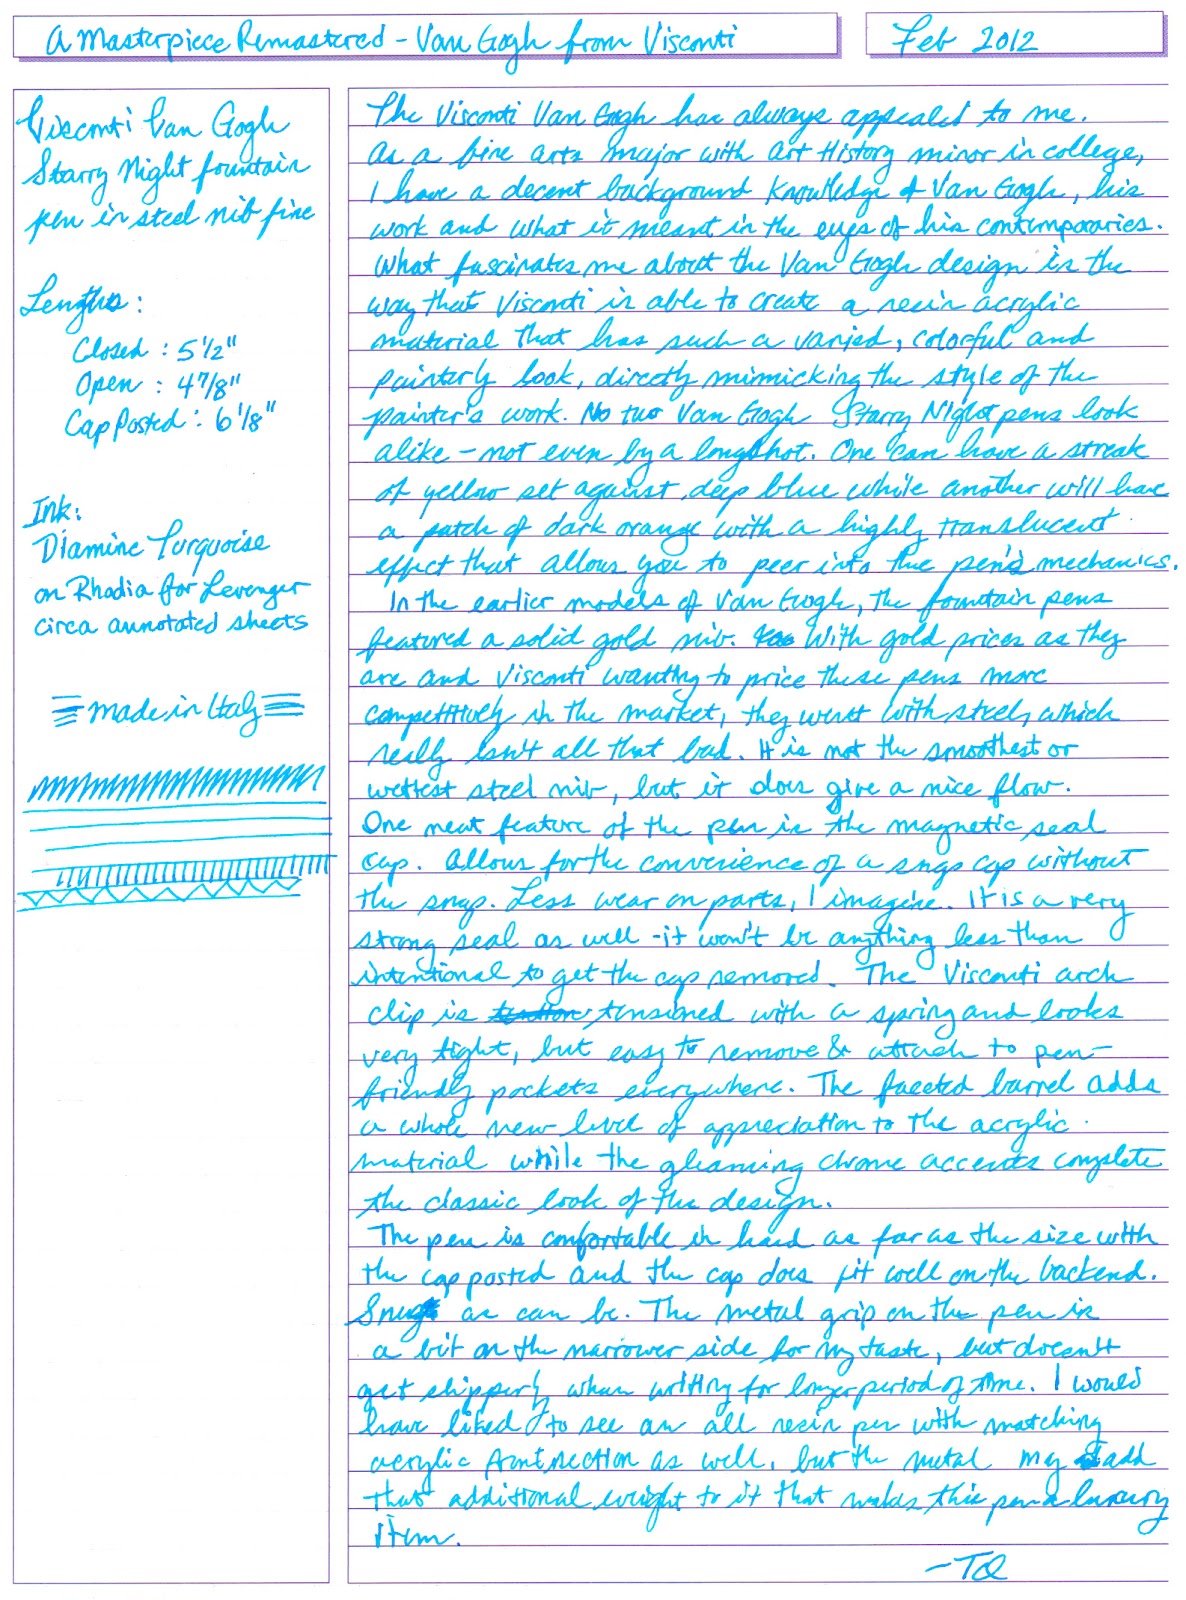 A Masterpiece Remastered - Van Gogh from Visconti
Feb 2012
Visconti Van Gogh
Starry Night fountain
pen in steel nib fine
Lengths:
Closed : 5 1/2"
Open : 4 7/8"
Cap Posted : 6 1/8"
Ink:
Diamine Turquoise
on Rhodia for Levenger
circa annotated sheets
made in Italy
The Visconti Van Gogh has always appealed to me.
As a fine arts major with Art History minor in college,
I have a decent background knowledge of Van Gogh, his
work and what it meant in the eyes of his contemporaries.
What fascinates me about the Van Gogh design is the
way that Visconti is able to create a resin acrylic
material that has such a varied, colorful and
painterly look, directly mimicking the style of the
painter's work. No two Van Gogh Starry Night pens look
alike - not even by a longshot. One can have a streak
of yellow set against deep blue while another will have
a patch of dark orange with a highly translucent
effect that allows you to peer into the pen's mechanics.
In the earlier models of Van Gogh, the fountain pens
featured a solid gold nib. With gold prices as they
are and Visconti wanting to price these pens more
competitively in the market, they went with steel, which
really isn't all that bad. It is not the smoothest or
wettest steel nib, but it does give a nice flow.
One neat feature of the pen is the magnetic seal
cap. Allows for the convenience of a snap cap without
the snap. Less wear on parts, I imagine. It is a very
strong seal as well - it won't be anything less than
intentional to get the cap removed. The Visconti arch
clip is tensioned with a spring and looks
very tight, but easy to remove & attach to pen-
friendly pockets everywhere. The faceted barrel adds
a whole new level of appreciation to the acrylic
material while the gleaming chrome accents complete
the classic look of the design.
The pen is comfortable in hand as far as the size with
the cap posted and the cap does fit well on the backend.
Snug as can be. The metal grip on the pen is
a bit on the narrower side for my taste, but doesn't
get slippery when writing for longer period of time. I would
have liked to see an all resin pen with matching
acrylic front section as well, but the metal may add
that additional weight to it that makes this pen a luxury
item.
-TQ